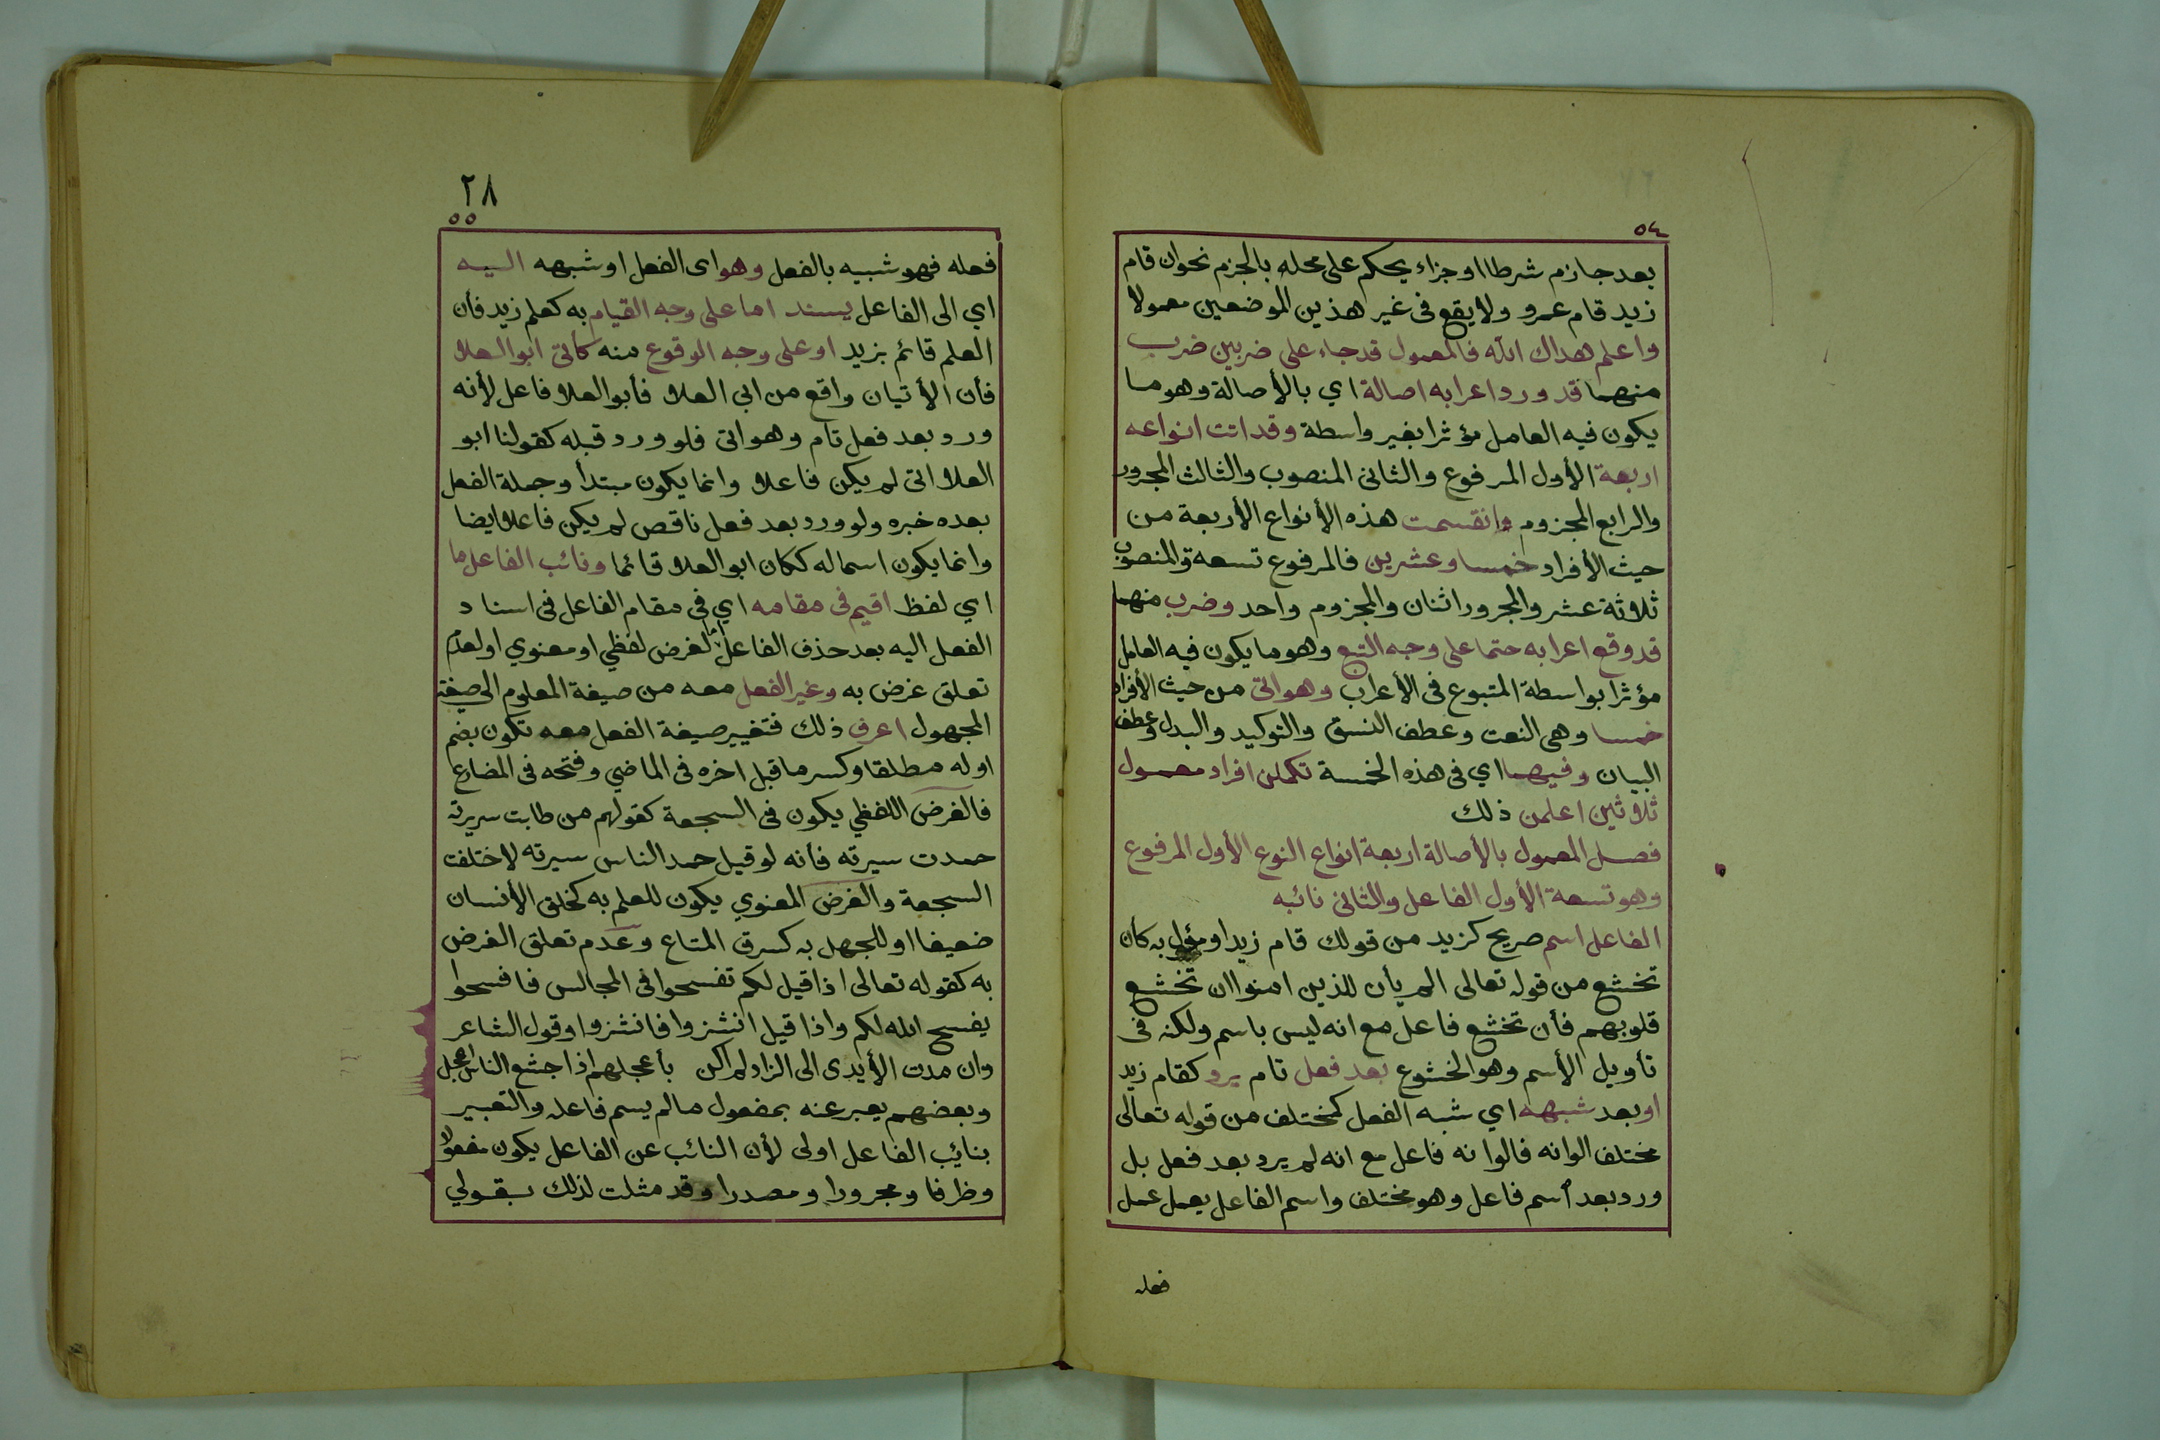 ٥٤
بعد جازم شرطا او جزاء يحكم على محله بالجزم نحو ان قام
زيد قام عمرو ولا يقع فى غير هذين الموضعين معمولا
واعلم هداك الله فالمعمول قد جاء على ضربين ضرب
منهما قد ورد اعرابه اصالة اي بالأصالة وهو ما
يكون فيه العامل مؤثرا بغير واسطة وقد اتت انواعه
اربعة الأول المرفوع والثانى المنصوب والثالث المجرور
والرابع المجزوم وانقسمت هذه الأنواع الأربعة من
حيث الأفراد خمسا وعشرين فالمرفوع تسعة والمنصوب
ثلاثة عشر والمجرور اثنان والمجزوم واحد وضرب منهما
قد وقع اعرابه حتما على وجه التبع وهو ما يكون فيه العامل
مؤثرا بواسطة المتبوع فى الأعراب وهو اتى من حيث الأفراد
خمسا وهى النعت وعطف النسق والتوكيد والبدل وعطف
البيان وفيهما اي فى هذه الخمسة تكملن افراد معمول
ثلاثين اعلمن ذلك
فصل المعمول بالأصالة اربعة انواع النوع الأول المرفوع
وهو تسعة الأول الفاعل والثانى نائبه
الفاعل اسم صريح كزيد من قولك قام زيد او مؤل به كأن
تخشع من قوله تعالى الم يأن للذين امنوا ان تخشع
قلوبهم فأن تخشع فاعل مع انه ليس باسم ولكنه فى
تأويل الأسم وهو الخشوع بعد فعل تام يرد كقام زيد
او بعد شبهه اي شبه الفعل كمختلف من قوله تعالى
مختلف الوانه فالوانه فاعل مع انه لم يرد بعد فعل بل
ورد بعد اسم فاعل وهو مختلف واسم الفاعل يعمل عمل
فعله
٢٨
٥٥
فعله فهو شبيه بالفعل وهو اى الفعل او شبهه اليه
اي الى الفاعل يسند اما على وجه القيام به كعلم زيد فأن
العلم قائم بزيد او على وجه الوقوع منه كأتى ابو العلا
فأن الأتيان واقع من ابى العلا فأبو العلا فاعل لأنه
ورد بعد فعل تام وهو اتى فلو ورد قبله كقولنا ابو
العلا اتى لم يكن فاعلا وانما يكون مبتدأ وجملة الفعل
بعده خبره ولو ورد بعد فعل ناقص لم يكن فاعلا ايضا
وانما يكون اسما له ككان ابو العلا قائما ونائب الفاعل ما
اي لفظ اقيم فى مقامه اي فى مقام الفاعل فى اسناد
الفعل اليه بعد حذف الفاعل اما لغرض لفظي او معنوي او لعدم
تعلق غرض به وغير الفعل معه من صيغة المعلوم الى صيغة
المجهول اعرف ذلك فتغيير صيغة الفعل معه تكون بضم
اوله مطلقا وكسر ما قبل اخره فى الماضي وفتحه فى المضارع
فالغرض اللفظي يكون فى السجعة كقولهم من طابت سريرته
حمدت سيرته فأنه لو قيل حمد الناس سيرته لاختلفت
السجعة والغرض المعنوي يكون للعلم به كخلق الأنسان
ضعيفا او للجهل به كسرق المتاع وعدم تعلق الغرض
به كقوله تعالى اذا قيل لكم تفسحوا فى المجالس فافسحوا
يفسح الله لكم واذا قيل انشزوا فانشزوا وقول الشاعر
وان مدت الأيدى الى الزاد لم اكن   بأعجلهم اذا جشع الناس اعجل
وبعضهم يعبر عنه بمفعول ما لم يسم فاعله والتعبير
بنائب الفاعل اولى لأن النائب عن الفاعل يكون مفعولا
وظرفا ومجرورا ومصدرا وقد مثلت لذلك بقولي